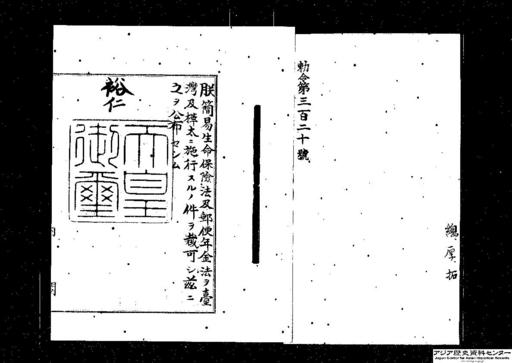 勅令第三百二十號
朕簡易生命保險法及郵便年金法ヲ臺
灣及樺太ニ施行スルノ件ヲ裁可シ茲ニ
之ヲ公布セシム
裕仁
天皇
御璽
內閣
アジア歴史資料センター
Japan Center for Asian Historical Records